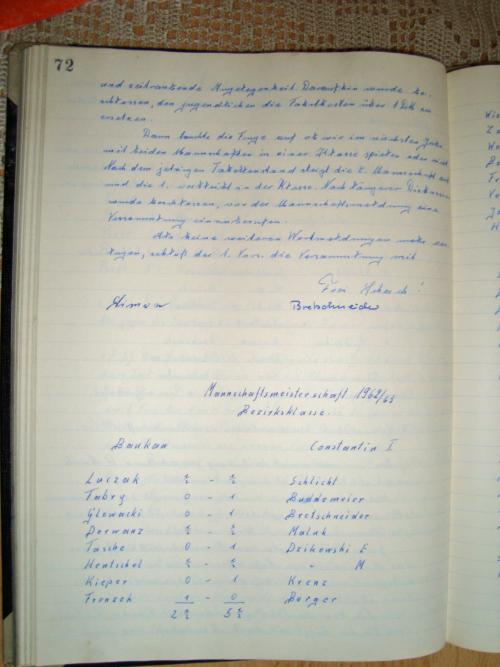 72
und zeitraubende Angelegenheit. Daraufhin wurde be-
schlossen, den jugendlichen die Fahrtkosten über 1 DM zu
ersetzen.
Dann tauchte die Frage auf ob wir im nächsten Jahr
mit beiden Mannschaften in einer Klasse spielen oder nicht.
Nach dem jetzigen Tabellenstand steigt die 2. Mannschaft auf
und die 1. verbleibt in der Klasse. Nach längerer Diskussion
wurde beschlossen, vor der Mannschaftsmeldung eine
Versammlung einzuberufen.
Als keine weiteren Wortmeldungen mehr vor-
lagen, schloß der 1. Vors. die Versammlung mit
Bretschneider
Mannschaftsmeisterschaft 1962/63
Bezirksklasse.
Baukau Constantin I
Luczak ½ - ½ Schlicht
Fabry 0 - 1 Buddemeier
Glowacki 0 - 1 Bretschneider
Derwanz ½ - ½ Malak
Tasche 0 - 1 Dzikowski E
Hentschel ½ - ½ " M
Kieper 0 - 1 Krenz
Fronzek 1 - 0 Berger
2½ 5½